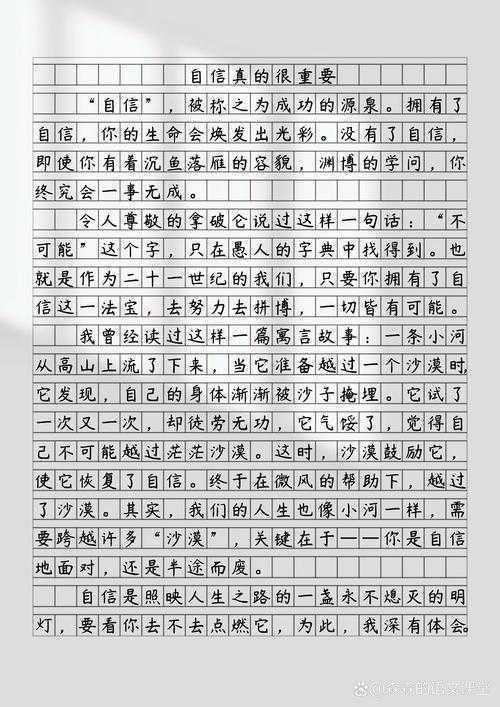 自信真的很重要
“自信”，被称之为成功的源泉。拥有了
自信，你的生命会焕发出光彩。没有了自信，
即使你有着沉鱼落雁的容貌，渊博的学问，你
终究会一事无成。
令人尊敬的拿破仑说过这样一句话：“不
可能”这个字，只在愚人的字典中找得到。也
就是作为二十一世纪的我们，只要你拥有了自
信这一法宝，去努力去拼博，一切皆有可能。
我曾经读过这样一篇寓言故事：一条小河
从高山上流了下来，当它准备越过一个沙漠时，
它发现，自己的身体渐渐被沙子掩埋。它试了
一次又一次，却徒劳无功，它气馁了，觉得自
己不可能越过茫茫沙漠。这时，沙漠鼓励它，
使它恢复了自信。终于在微风的帮助下，越过
了沙漠。其实，我们的人生也像小河一样，需
要跨越许多“沙漠”，关键在于——你是自信
地面对，还是半途而废。
自信是照映人生之路的一盏永不熄灭的明
灯，要看你去不去点燃它，为此，我深有体会。
@森森的语文课堂